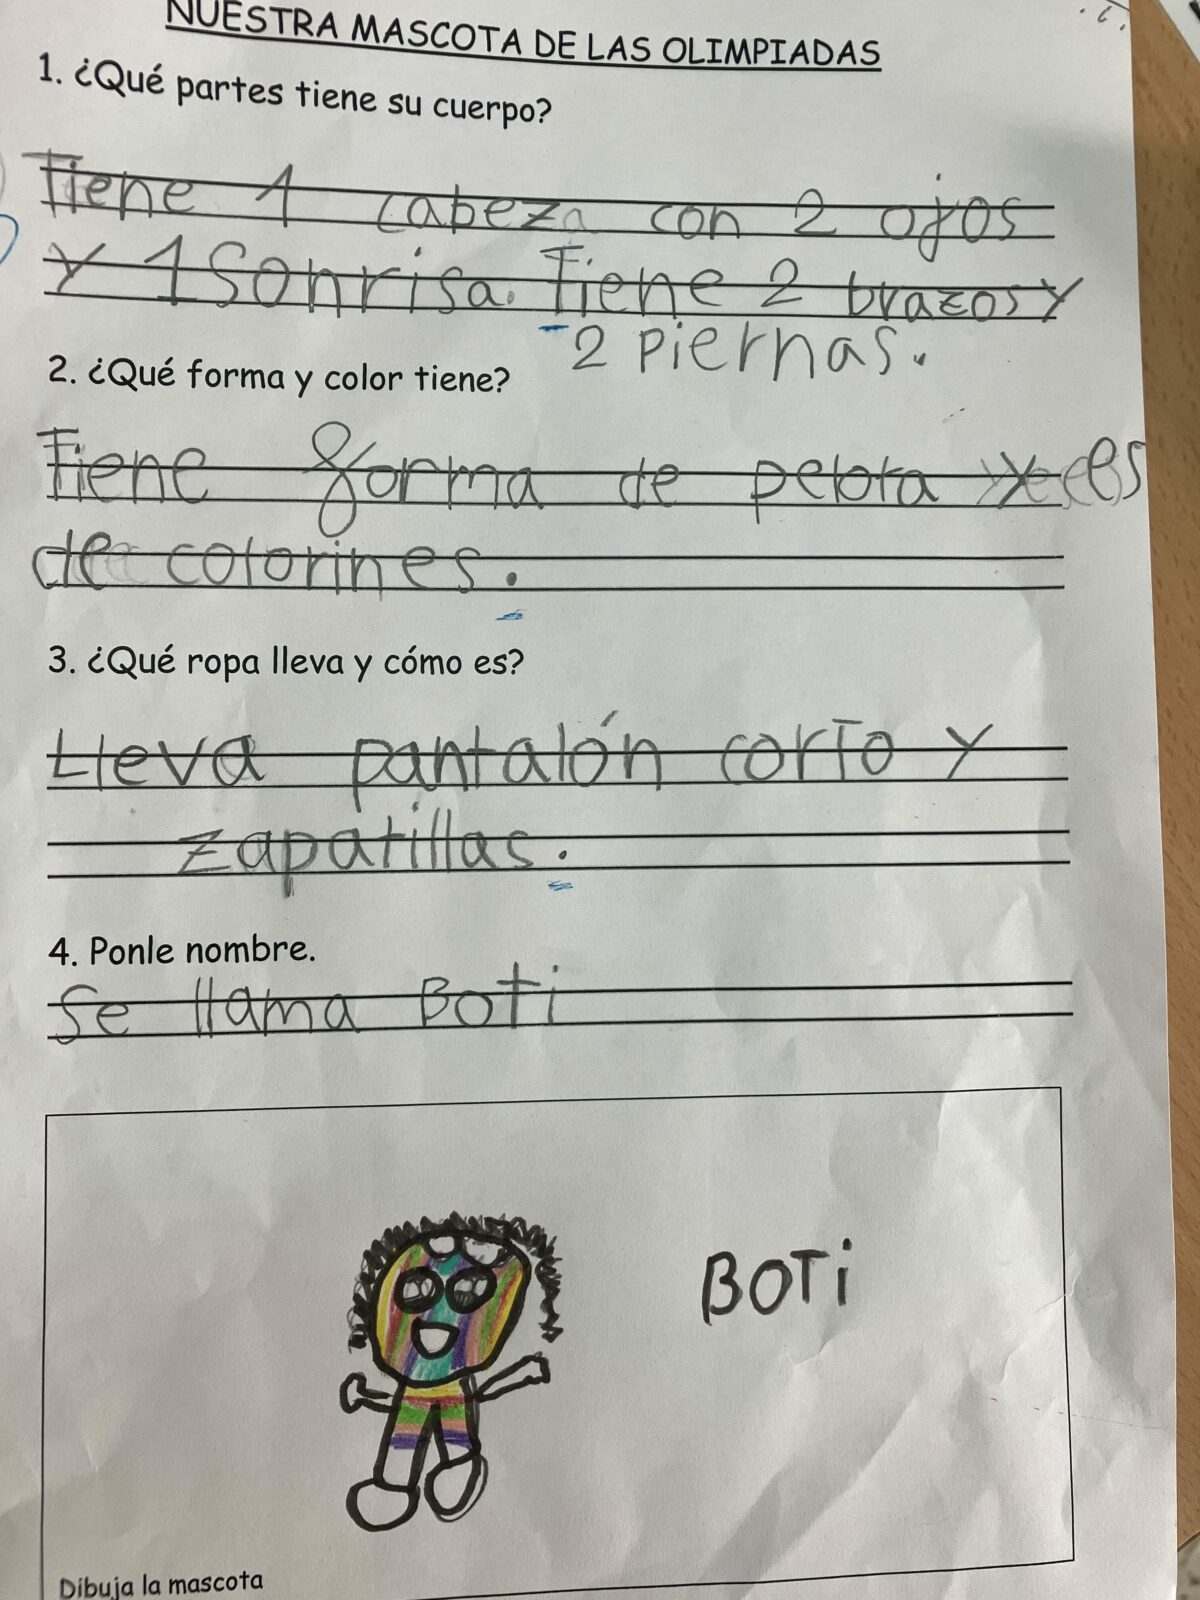 NUESTRA MASCOTA DE LAS OLIMPIADAS
1. ¿Qué partes tiene su cuerpo?
Tiene 1 cabeza con 2 ojos
y 1 sonrisa. Tiene 2 brazos y
2 piernas.
2. ¿Qué forma y color tiene?
Tiene forma de pelota y es
de colorines.
3. ¿Qué ropa lleva y cómo es?
Lleva pantalón corto y
zapatillas.
4. Ponle nombre.
Se llama Boti
BOTi
Dibuja la mascota